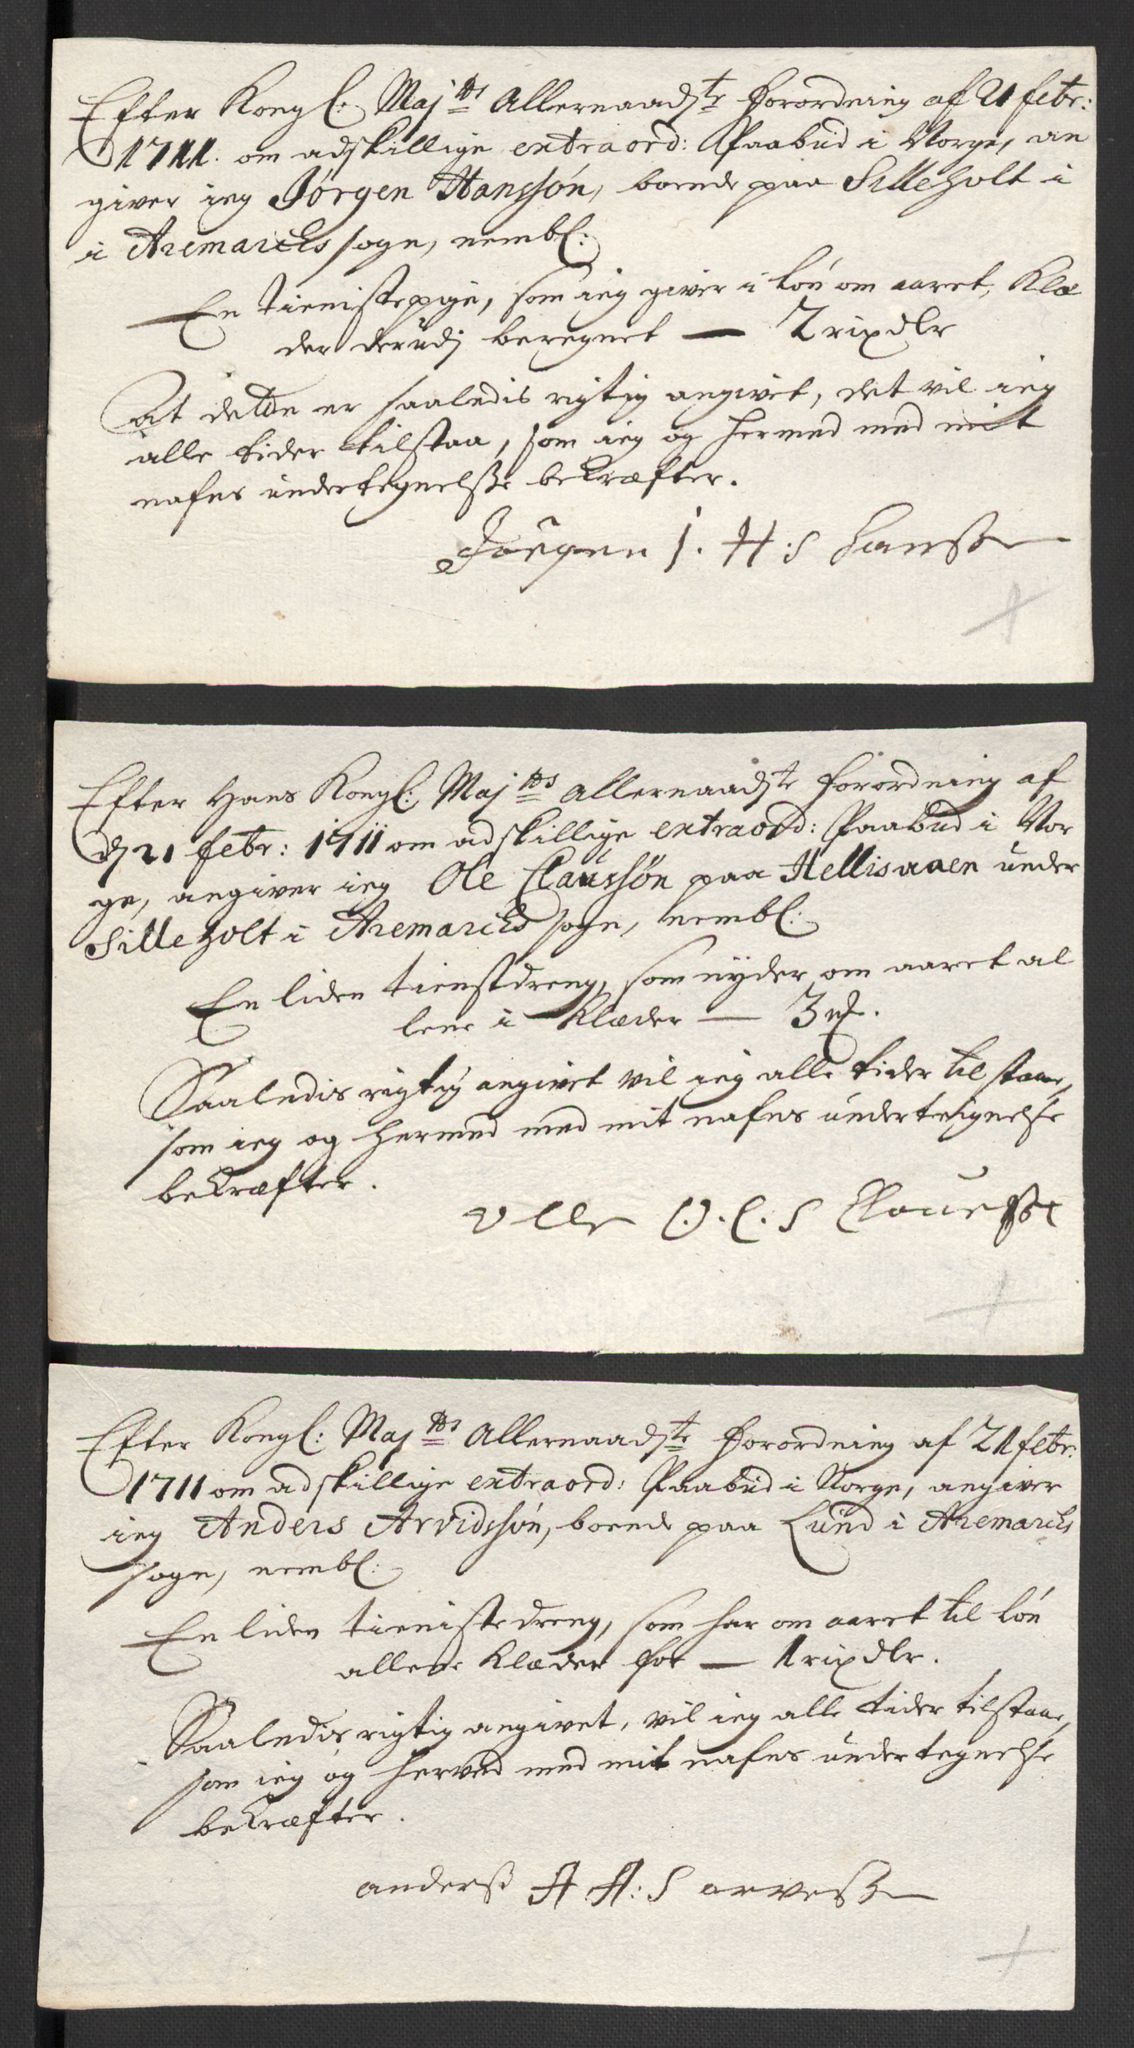 Efter Kongl: Maj:ts Allernaadste forordning af 21 febr:
1711. om adskillige extraord: Paabud i Norge, an
giver ieg Jørgen Hanssøn, boende paa Silleholt i
i Aremarchs sogn, nembl:
En tienistepige, som ieg giver i løn om aaret, Klæ
der derudj beregnet — 2 rixdlr
At dette er saaledis rigtig angivet, det vil ieg
alle tider tilstaa, som ieg og hermed med mit
nafns undertegnelsse bekræfter.
Jørgen J. H: S Hanssen
Efter Hans Kongl: Maj:ts Allernaadste forordning af
d 21 febr: 1711 om adskillige extraord: Paabud i Nor
ge, angiver ieg Ole Claussøn paa Hellisaaen under
Silleholt i Aremarchs sogn, nembl:
En liden tienstdreng, som nyder om aaret al
lene i Klæder — 3 rd.
Saaledis rigtig angivet vil ieg alle tider tilstaae,
som ieg og hermed med mit nafns underteignelse
bekræfter.
Olle O. C. S Clauesst
Efter Kongl: Maj:ts Allernaadste forordning af 21 febr:
1711 om adskillige extraord: Paabud i Norge, angiver
ieg Anders Arvidssøn, boende paa Lund i Aremarchs
sogn, nembl:
En liden tieniste dreng, som har om aaret til løn
allene Klæder for — 1 rixdlr.
Saaledis rigtig angivet, vil ieg alle tider tilstaae,
som ieg og herved med mit nafns undertegnelse
bekræfter.
anderss A A: S arvessen